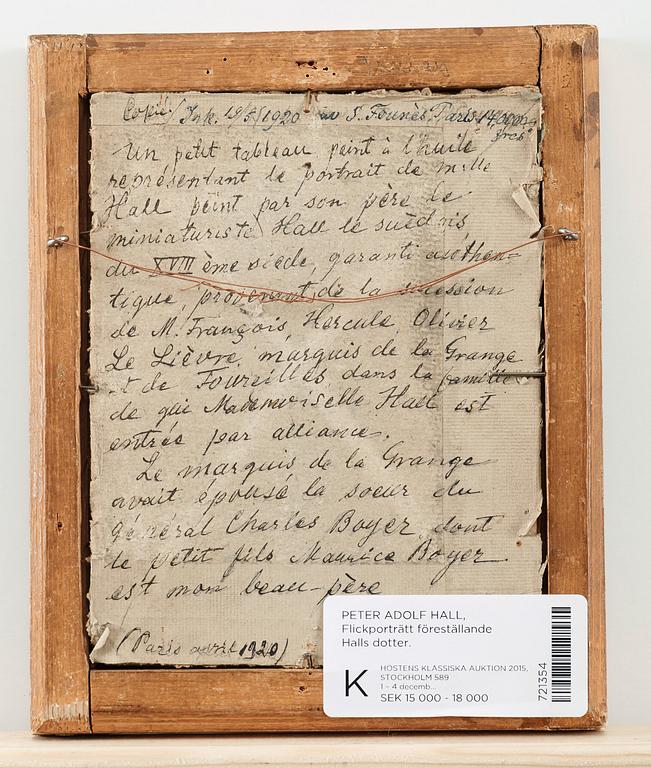 Copié/Ink. 19/5/1920 av S. Founès, Paris 14000
frcs
Un petit tableau peint à l'huile
représentant le portrait de Mlle
Hall peint par son père le
miniaturiste Hall le suédois,
du XVIII ème siècle, garanti authen-
tique, provenant de la succession
de M. François, Hercule, Olivier
Le Lièvre, marquis de la Grange
et de Foureilles, dans la famille
de qui Mademoiselle Hall est
entrée par alliance.
Le marquis de la Grange
avait épousé la soeur du
général Charles Boyer, dont
le petit fils Maurice Boyer
est mon beau-père
(Paris avril 1920)
PETER ADOLF HALL,
Flickporträtt föreställande
Halls dotter.
K
HÖSTENS KLASSISKA AUKTION 2015,
STOCKHOLM 589
1 – 4 decemb...
SEK 15 000 - 18 000
721354